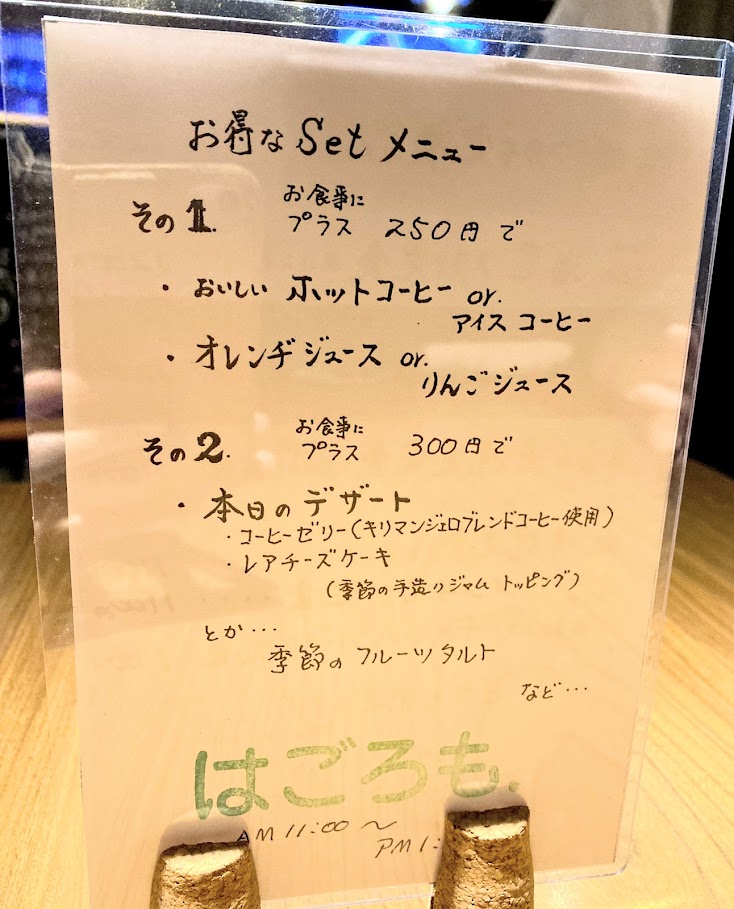 お得な Set メニュー
その1. お食事にプラス 250円で
・おいしい ホットコーヒー or.
アイス コーヒー
・オレンヂジュース or.
りんごジュース
その2. お食事にプラス 300円で
・本日の デザート
・コーヒーゼリー(キリマンジェロブレンドコーヒー使用)
・レアチーズケーキ
(季節の手造りジャム トッピング)
とか・・・
季節の フルーツタルト
など・・・
はごろも.
AM 11:00 〜
PM 1: